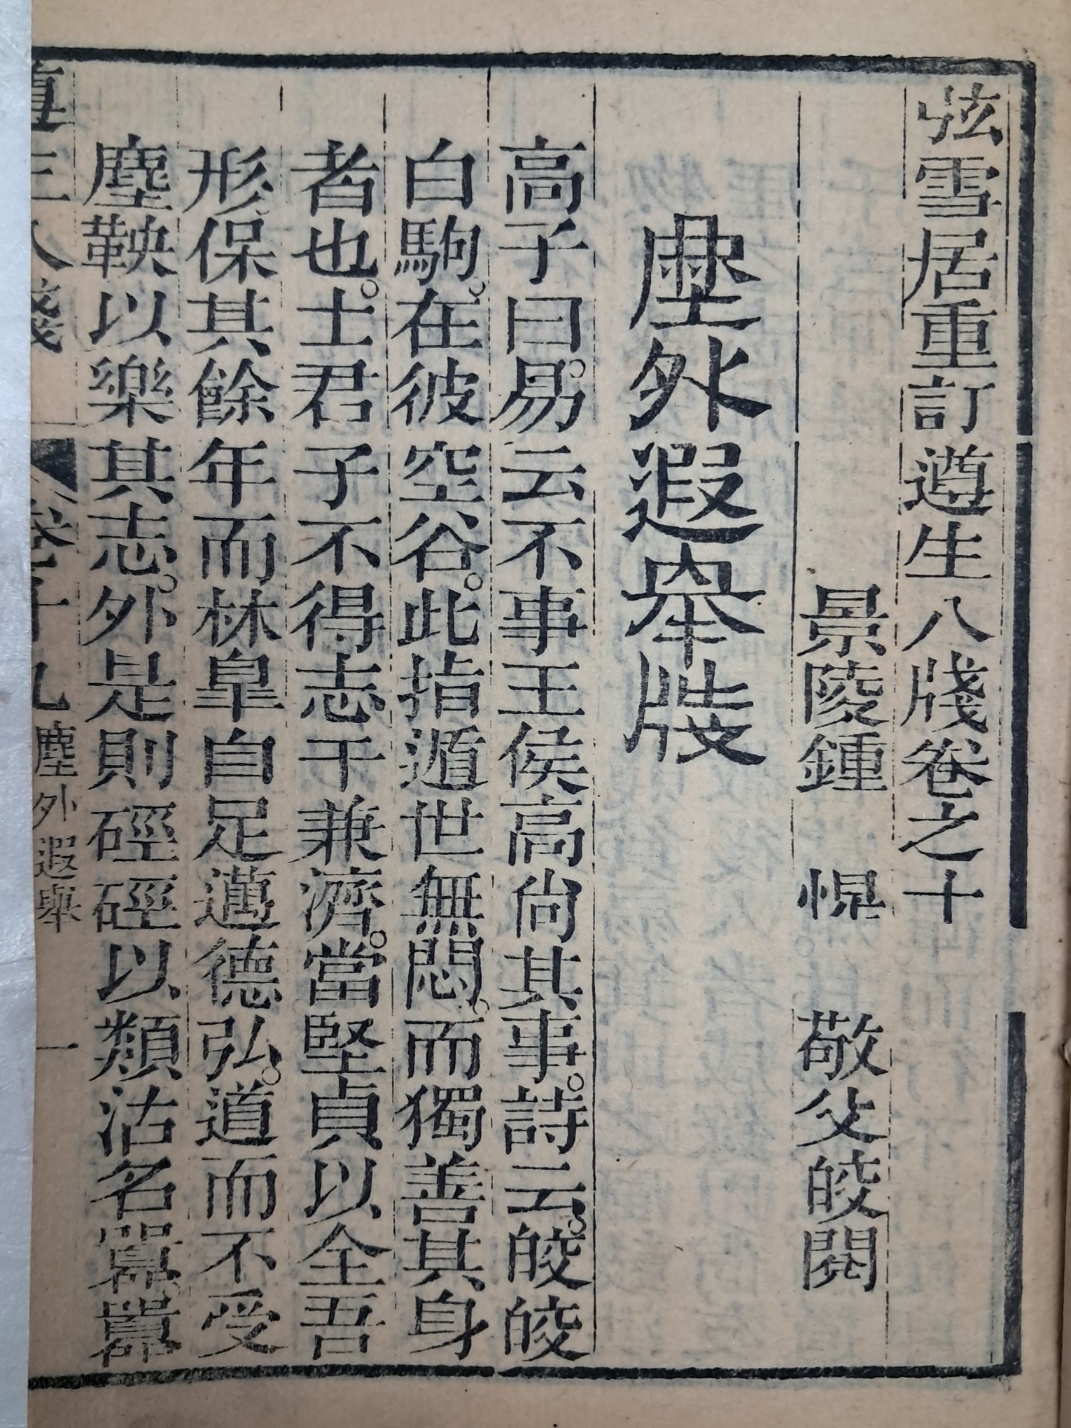 弦雪居重訂遵生八牋卷之十
景陵鍾 惺 敬父較閱
塵外遐舉牋
高子曰易云不事王侯高尚其事詩云皎皎
白駒在彼空谷此指遁世無悶而獨善其身
者也士君子不得志于兼濟當堅貞以全吾
形保其餘年而林臯自足邁德弘道而不受
塵鞅以樂其志外是則硜硜以類沽名囂囂
遵生八牋
卷十九 塵外遐舉 一